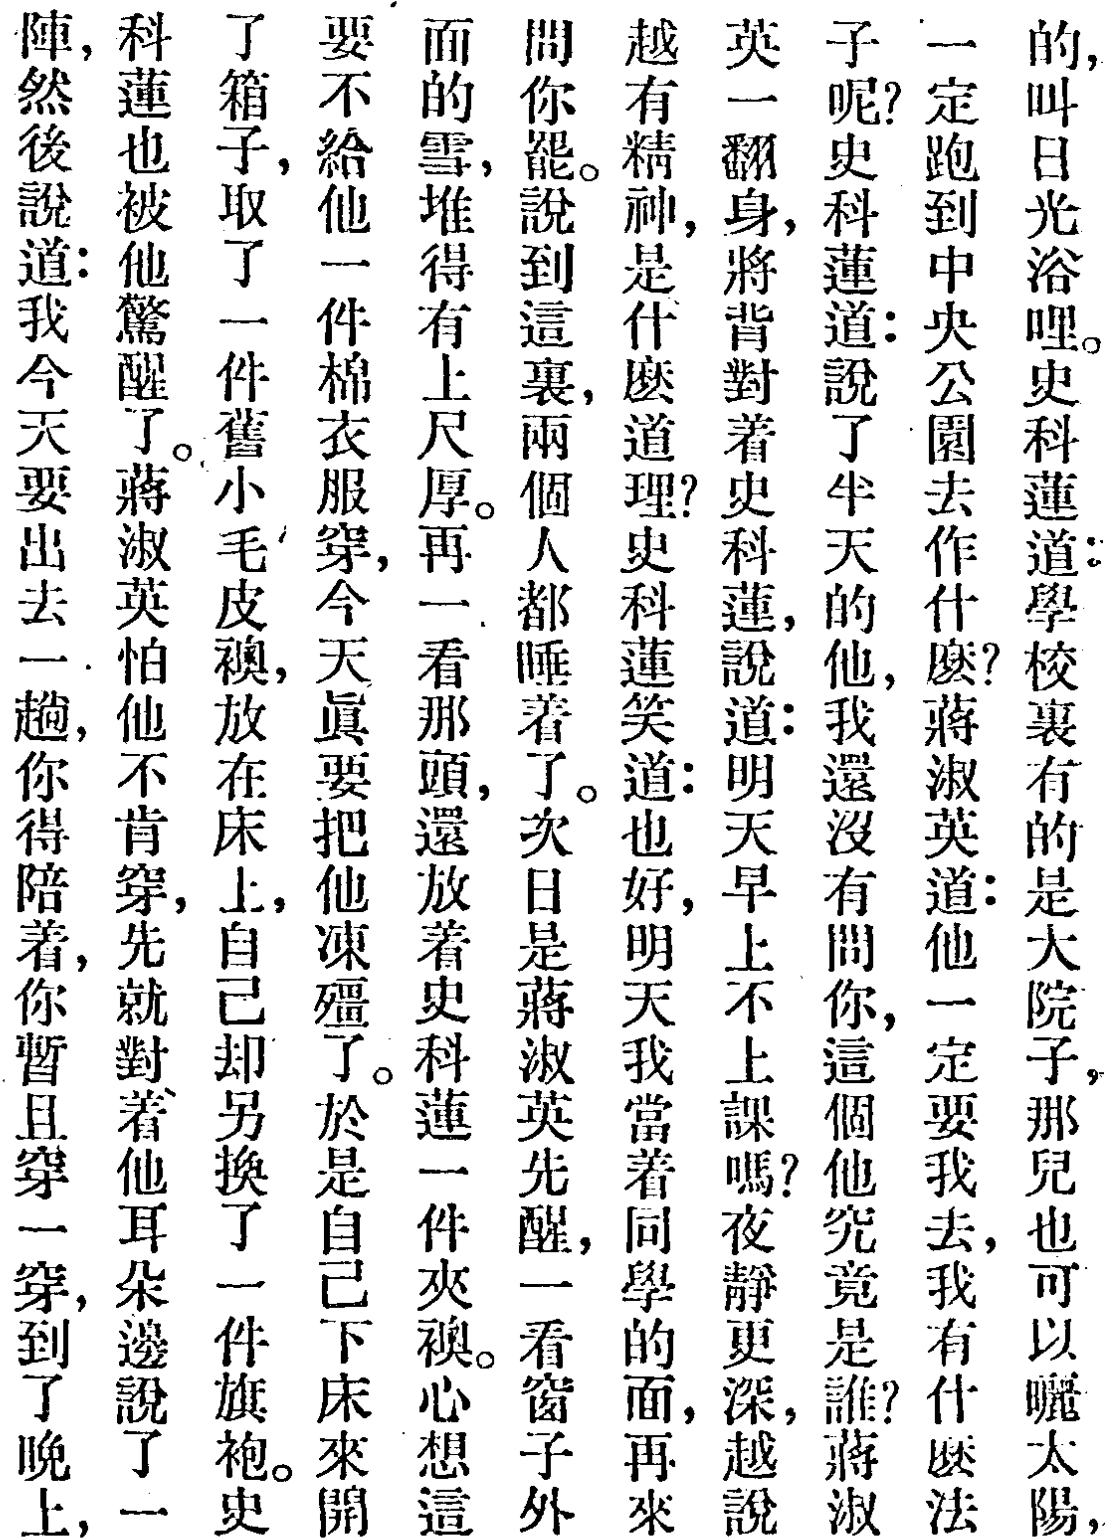 的，叫日光浴哩。史科蓮道：學校裏有的是大院子，那兒也可以曬太陽，
一定跑到中央公園去作什麽？蔣淑英道：他一定要我去，我有什麽法
子呢？史科蓮道：說了半天的他，我還沒有問你，這個他究竟是誰？蔣淑
英一翻身，將背對着史科蓮，說道：明天早上不上課嗎？夜靜更深，越說
越有精神，是什麽道理？史科蓮笑道：也好，明天我當着同學的面，再來
問你罷。說到這裏，兩個人都睡着了。次日是蔣淑英先醒，一看窗子外
面的雪，堆得有上尺厚。再一看那頭，還放着史科蓮一件夾襖。心想這
要不給他一件棉衣服穿，今天眞要把他凍殭了。於是自己下床來開
了箱子，取了一件舊小毛皮襖，放在床上，自己却另換了一件旗袍。史
科蓮也被他驚醒了。蔣淑英怕他不肯穿，先就對着他耳朵邊說了一
陣，然後說道：我今天要出去一趟，你得陪着，你暫且穿一穿，到了晚上，